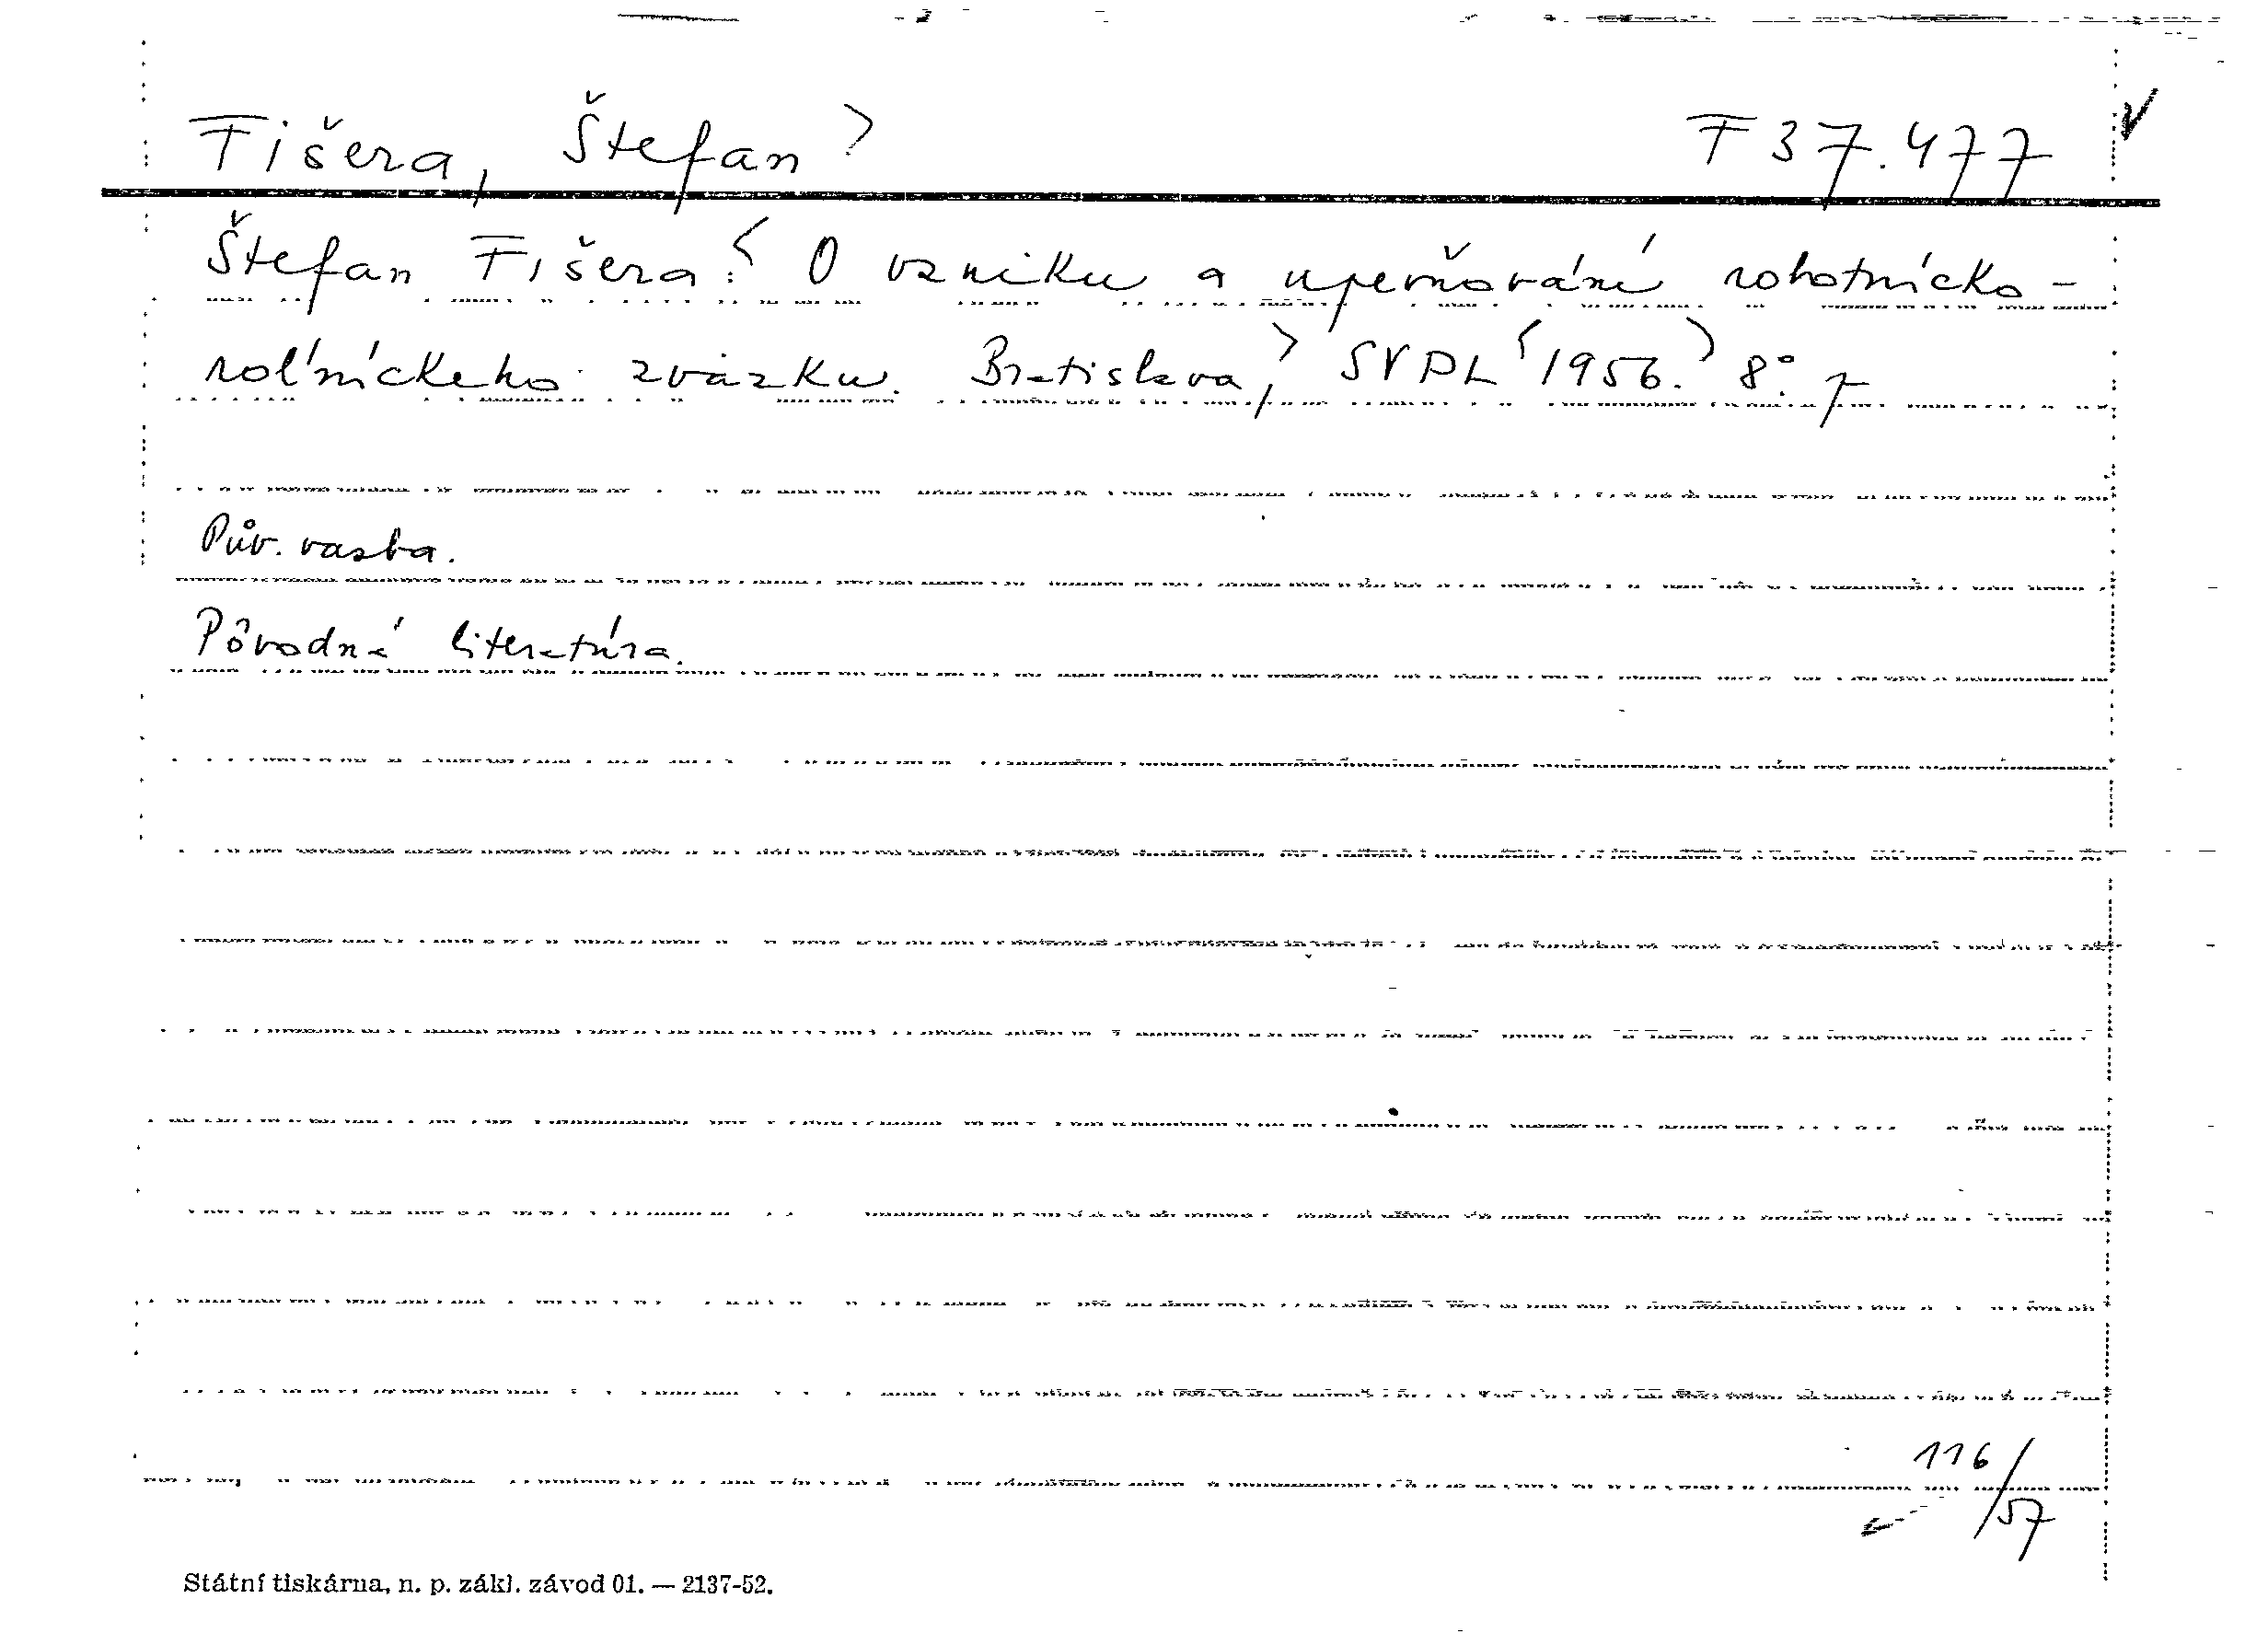 Fišera, Štefan> F 37.477 ✓
Štefan Fišera:< O vzniku a upevňování robotnícko-
roľníckeho zväzku. Bratislava,> SVPL <1956.> 8°. 7
Pův. vazba.
Pôvodná literatúra.
116/57
Státní tiskárna, n. p. zákl. závod 01. — 2137-52.